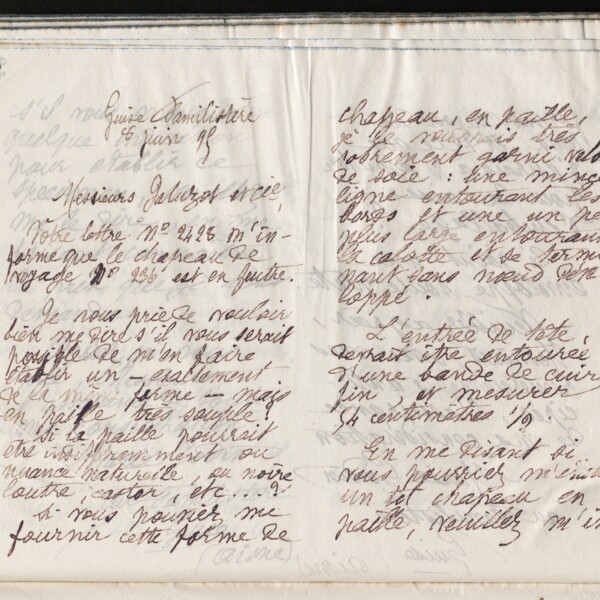 Guise Familistère
8 juin 95
Messieurs Jaluzot et Cie,
Votre lettre Nº 2428 m'in-
forme que le chapeau de
voyage Nº 236 est en feutre.
Je vous prie de vouloir
bien me dire s'il vous serait
possible de m'en faire
établir un — exactement
de la même forme — mais
en paille très souple ?
Si la paille pourrait
être indifféremment ou
nuance naturelle, ou noire
loutre, castor, etc....?
Si vous pouviez me
fournir cette forme de
chapeau, en paille,
je le voudrais très
sobrement garni velo
de soie : une mince
ligne entourant les
bords et une un pe
plus large entourant
la calotte et se termi
nant sans nœud déve
loppé.
L'entrée de tête
devrait être entourée
d'une bande de cuir
fin, et mesurer
54 centimètres ½.
En me disant si
vous pourriez m'
un tel chapeau en
paille, veuillez m'in